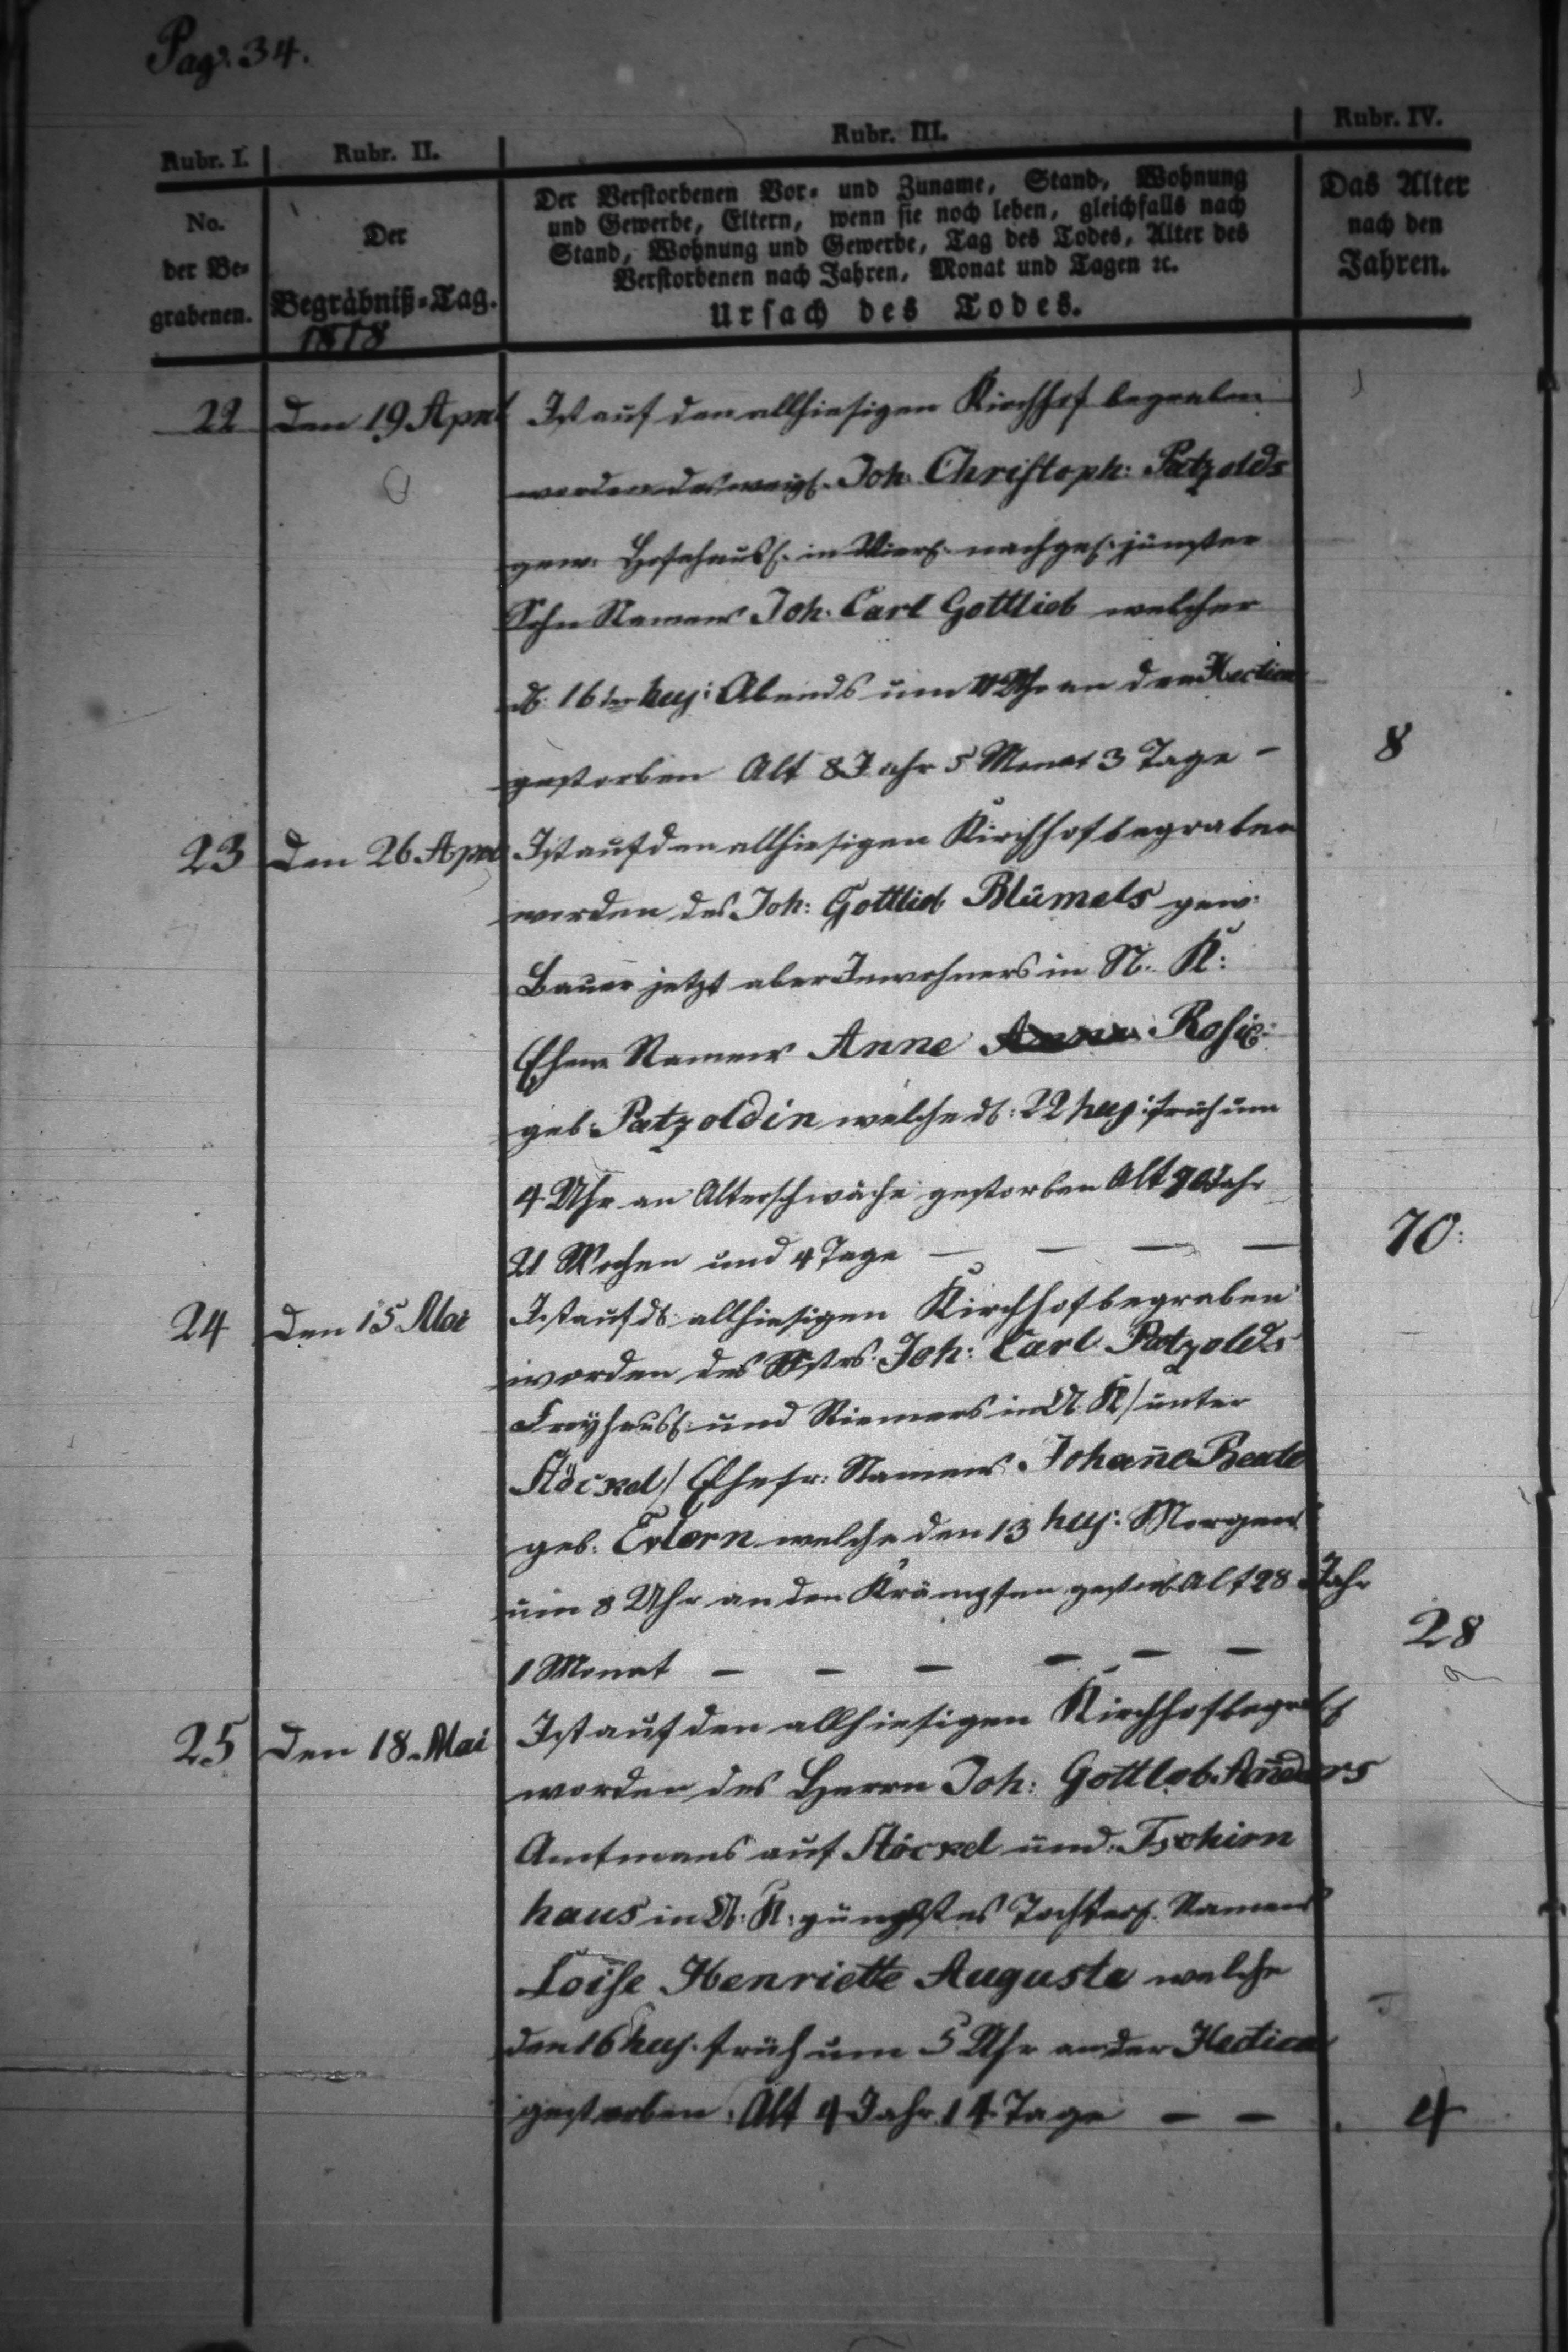 Pag: 34.
Rubr. I. Rubr. II. Rubr. III. Rubr. IV.
No. der Be-grabenen.
Der Begräbniß-Tag. 1818
Der Verstorbenen Vor- und Zuname, Stand, Wohnung
und Gewerbe, Eltern, wenn sie noch leben, gleichfalls nach
Stand, Wohnung und Gewerbe, Tag des Todes, Alter des
Verstorbenen nach Jahren, Monat und Tagen ꝛc.
Ursach des Todes.
Das Alter
nach den
Jahren.
22 den 19 April Ist auf den allhiesigen Kirchhof begraben
worden des Joh: Christoph: Patzolds
gew: in nachgel. jüngster
Sohn Namens Joh: Carl Gottlieb welcher
d: 16ten huj: Abends um 11 Uhr an der Hectica
gestorben Alt 8 Jahr 5 Monat 3 Tage – 8
23 den 26 April Ist auf den allhiesigen Kirchhof begraben
worden des Joh: Gottlieb Blümels gew:
Bauer jetzt aber Inwohners in N. K:
Ehew: Namens Anne Rosie:
geb: Patzoldin welche d: 22 huj: früh um
4 Uhr an Altersschwäche gestorben Alt 70 Jahr
21 Wochen und 4 Tage – – – – 70:
24 den 15 Mai Ist auf d: allhiesigen Kirchhof begraben
worden des Mstrs. Joh: Carl Patzolds
Freyhäusl: und Riemers in N. K / unter
Stöckel / Ehefr: Namens Johan̄e Beate
geb: welche den 13 huj: Morgens
um 8 Uhr an den Krämpfen gestorb. Alt 28 Jahr
1 Monat – – – – – – 28
25 den 18. Mai Ist auf den allhiesigen Kirchhof begrab:
worden des Herrn Joh: Gottlob Anders
Amtmans auf Stöckel und Tschirn
haus in N: K: jüngstes Tochterl. Namens
Loise Henriette Auguste welche
den 16 huj: früh um 5 Uhr an der Hectica
gestorben. Alt 4 Jahr 14 Tage – – 4